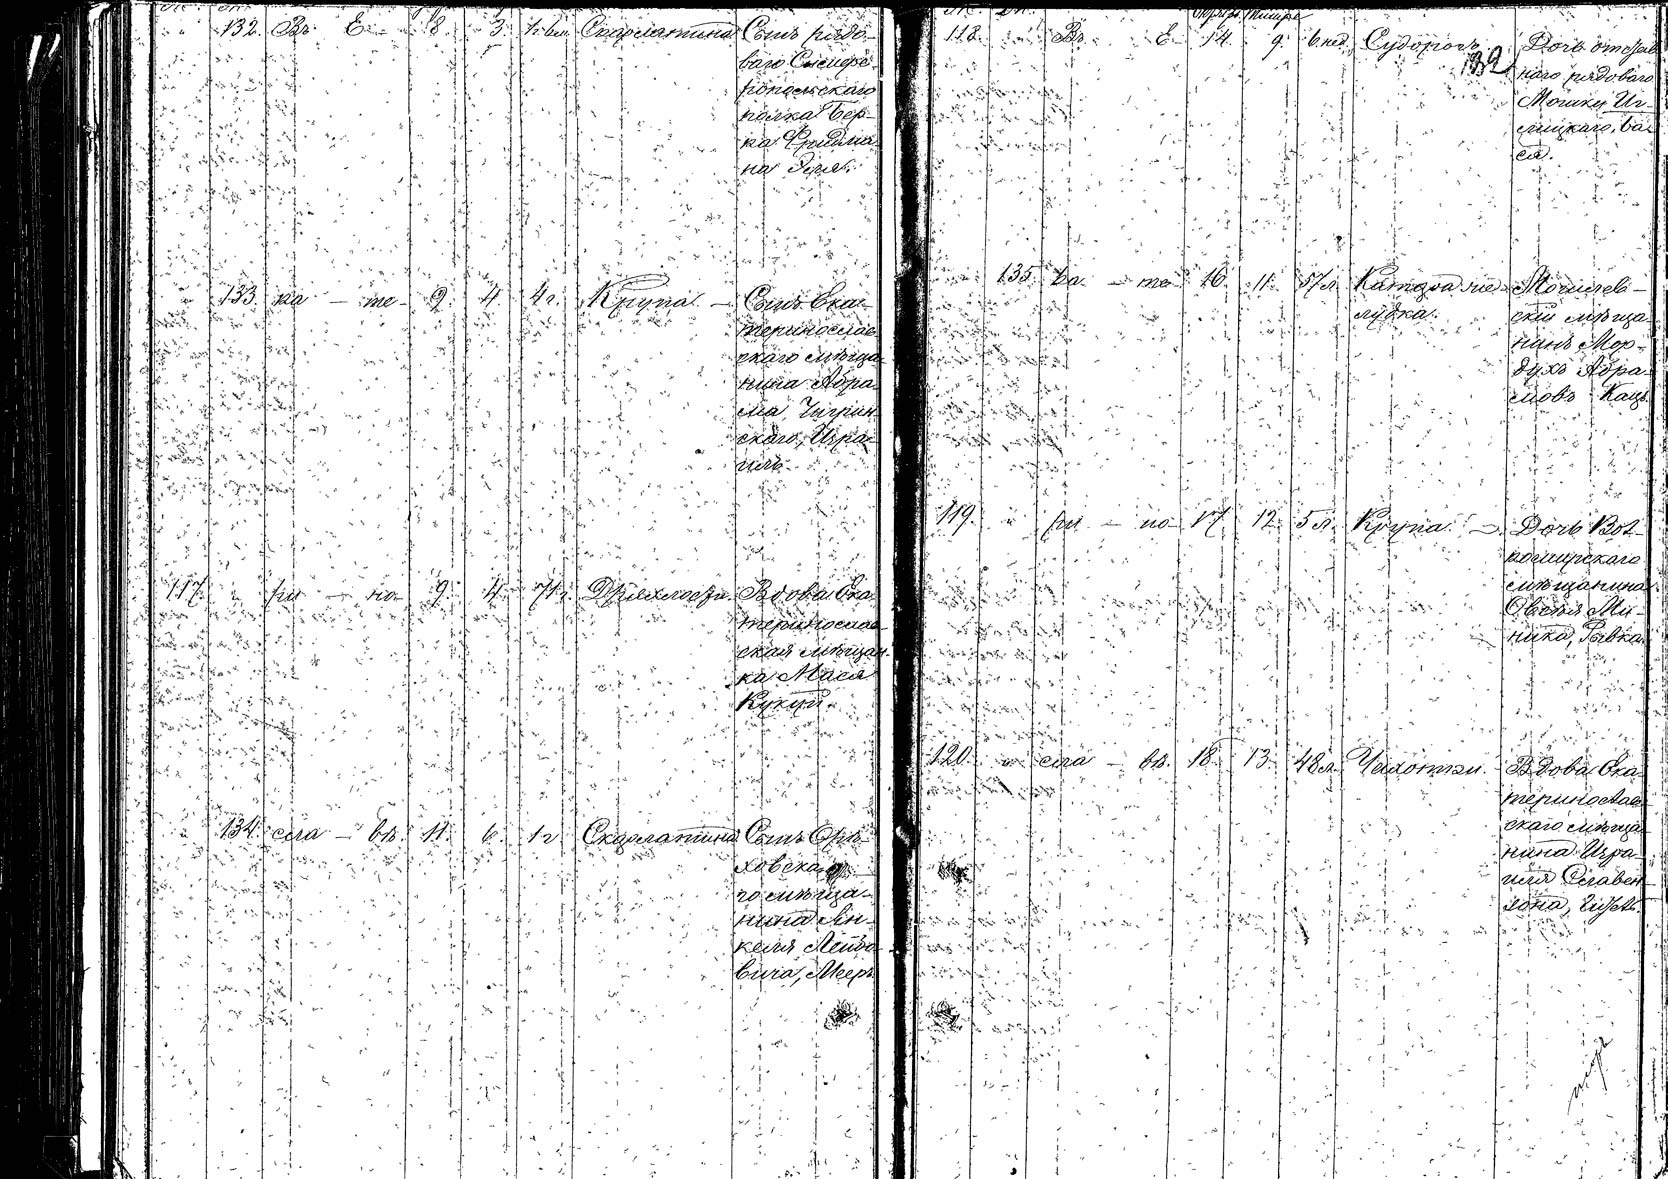 132. Въ Е 8 3 Скарлатина Сынъ рядо-
ваго Симфе-
ропольскаго
полка Бер-
ка Фридма-
на
133. ка – те – 9. 4 4 г. Крупа – Сынъ Ека-
теринослав-
скаго мѣща-
нина Абра-
ма Чигрин-
скаго, Изра-
иль
117. " ри – но 9. 4. 71 г. Дряхлость. Вдова Ека-
теринослав-
ская мѣщан-
ка Мася
Кукуй.
134. сла – вѣ 11. 6. 1 г Скарлатина Сынъ Орѣ-
ховска
го мѣща-
нина Ян-
келя Лейбо-
вича, Мееръ
118. Въ Е 14 9. 6 нед. Судорогъ Дочь отстав-
132
наго рядоваго
Мошки Иг-
лицкаго, Ба-
ся.
135 ка – те 16. 11. 57 л. Катаръ же- Могилев-
лудка. скій мѣща-
нинъ Мор-
духъ Абра-
мовъ Кацъ
119. " ри – но – 17 12. 5 л. Крупа – Дочь
мѣщанина
Овсѣя Ми-
ника, Рывка
120. " сла – вѣ. 18. 13. 48 л. Чахотки – Вдова Ека-
теринослав-
скаго мѣща-
нина Изра-
иля Славен-
зона,